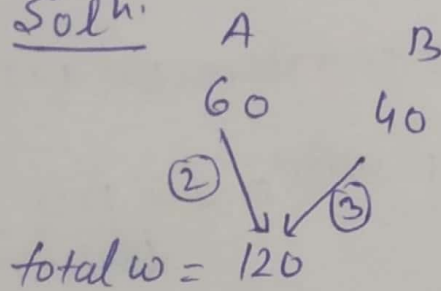 Soln.
A B
60 40
② ③
total w = 120